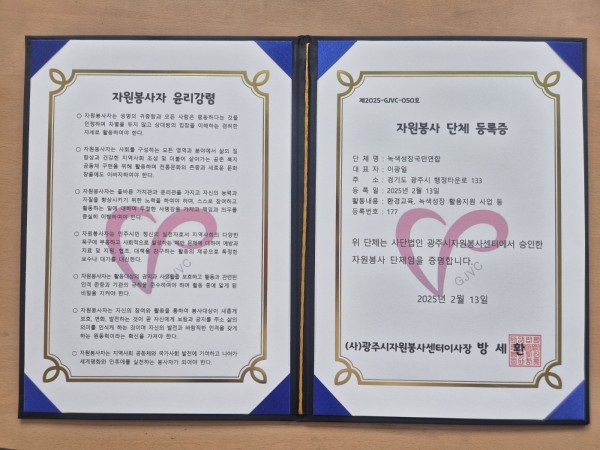 자원봉사자 윤리강령
○ 자원봉사자는 생명의 귀중함과 모든 사람은 평등하다는 것을
인정하며 차별을 두지 않고 상대방의 입장을 이해하는 겸허한
자세로 활동하여야 한다.
○ 자원봉사자는 사회를 구성하는 모든 영역과 분야에서 삶의 질
향상과 건강한 지역사회 조성 및 더불어 살아가는 공존 복지
공동체 구현을 위해 활동하며 전통문화의 존중과 새로운 문화
창출에도 이바지하여야 한다.
○ 자원봉사자는 올바른 가치관과 윤리관을 가지고 자신의 능력과
자질을 향상시키기 위한 노력을 하여야 하며, 스스로 참여하고
활동하는 일에 대하여 투철한 사명감을 가지고 책임과 의무를
충실히 이행하여야 한다.
○ 자원봉사자는 민주시민 정신의 실천자로서 지역사회의 다양한
욕구에 부응하고 사회적으로 발생하는 제반 문제에 대하여 예방과
치료 및 지원, 협조, 대책을 강구하는 활동의 제공으로 특정한
보수나 대가를 대신한다.
○ 자원봉사자는 활동대상의 권리와 사생활을 보호하고 활동과 관련된
인격 존중과 기관의 규칙을 준수하여야 하며 활동 중에 알게 된
비밀을 지켜야 한다.
○ 자원봉사자는 자신의 참여와 활동을 통하여 봉사대상이 새롭게
보호, 변화, 발전하는 것이 곧 자신에게 보람과 긍지를 주는 삶의
의미를 인식케 하는 것이며 자신의 발전과 바람직한 인격을 갖게
하는 원동력이라는 확신을 가져야 한다.
○ 자원봉사자는 지역사회 공동체와 국가사회 발전에 기여하고 나아가
세계평화와 인류애를 실천하는 봉사자가 되어야 한다.
GJVC
제2025-GJVC-050호
자원봉사 단체 등록증
단 체 명 : 녹색성장국민연합
대 표 자 : 이광일
주 소 : 경기도 광주시 행정타운로 133
등 록 일 : 2025년 2월 13일
활동내용 : 환경교육, 녹색성장 활동지원 사업 등
등록번호 : 177
위 단체는 사단법인 광주시자원봉사센터에서 승인한
자원봉사 단체임을 증명합니다.
GJVC
2025년 2월 13일
(사)광주시자원봉사센터이사장 방 세 환